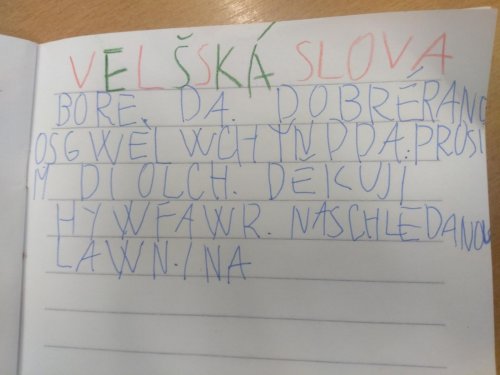 VELŠSKÁ SLOVA
BORE. DA. DOBRÉRANO
OSGWELWCHYNDDA.PROSI
M DIOLCH. DEKUJI
HYWFAWR. NASCHLEDANOU
LAWN.INA